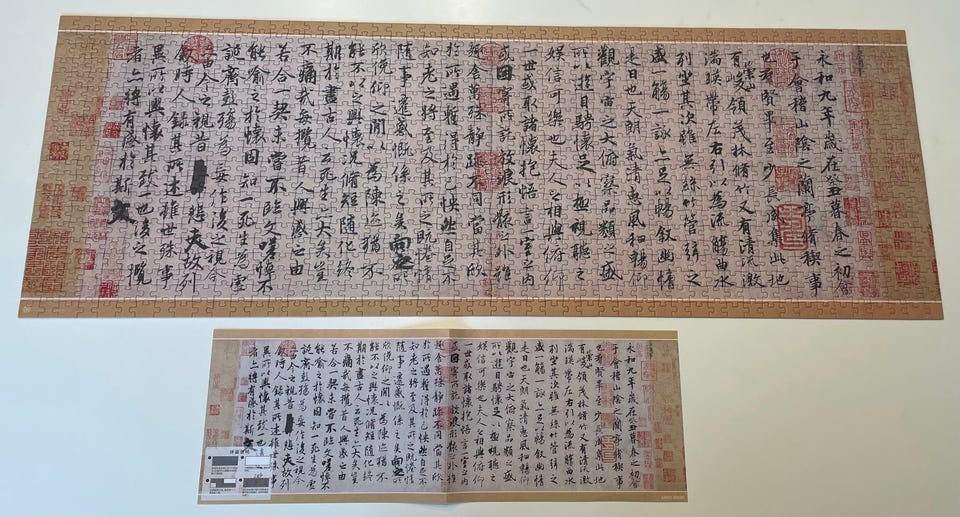 永和九年歲在癸丑暮春之初會
于會稽山陰之蘭亭脩稧事
也羣賢畢至少長咸集此地
有崇山峻領茂林脩竹又有清流激
湍暎帶左右引以為流觴曲水
列坐其次雖無絲竹管弦之
盛一觴一詠亦足以暢敘幽情
是日也天朗氣清惠風和暢仰
觀宇宙之大俯察品類之盛
所以遊目騁懷足以極視聽之
娛信可樂也夫人之相與俯仰
一世或取諸懷抱悟言一室之內
或因寄所託放浪形骸之外雖
趣舍萬殊靜躁不同當其欣
於所遇蹔得於己怏然自足不
知老之將至及其所之既惓情
隨事遷感慨係之矣向之所
欣俛仰之間以為陳迹猶不
能不以之興懷況脩短隨化終
期於盡古人云死生亦大矣豈
不痛哉每攬昔人興感之由
若合一契未嘗不臨文嗟悼不
能喻之於懷固知一死生為虛
誕齊彭殤為妄作後之視今
亦由今之視昔悲夫故列
敘時人錄其所述雖世殊事
異所以興懷其致一也後之攬
者亦將有感於斯文
永和九年歲在癸丑暮春之初會
于會稽山陰之蘭亭脩稧事
也羣賢畢至少長咸集此地
有崇山峻領茂林脩竹又有清流激
湍暎帶左右引以為流觴曲水
列坐其次雖無絲竹管弦之
盛一觴一詠亦足以暢敘幽情
是日也天朗氣清惠風和暢仰
觀宇宙之大俯察品類之盛
所以遊目騁懷足以極視聽之
娛信可樂也夫人之相與俯仰
一世或取諸懷抱悟言一室之內
或因寄所託放浪形骸之外雖
趣舍萬殊靜躁不同當其欣
於所遇蹔得於己怏然自足不
知老之將至及其所之既惓情
隨事遷感慨係之矣向之所
欣俛仰之間以為陳迹猶不
能不以之興懷況脩短隨化終
期於盡古人云死生亦大矣豈
不痛哉每攬昔人興感之由
若合一契未嘗不臨文嗟悼不
能喻之於懷固知一死生為虛
誕齊彭殤為妄作後之視今
亦由今之視昔悲夫故列
敘時人錄其所述雖世殊事
異所以興懷其致一也
者亦將有感於斯